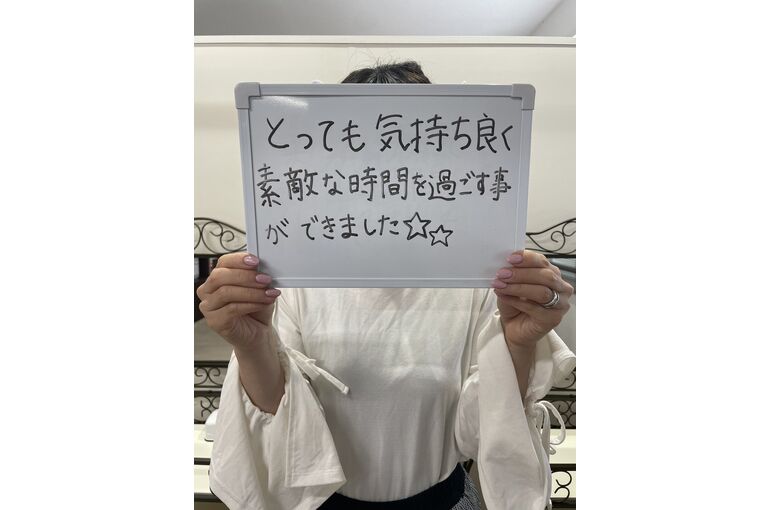 とっても気持ち良く
素敵な時間を過ごす事
ができました☆☆